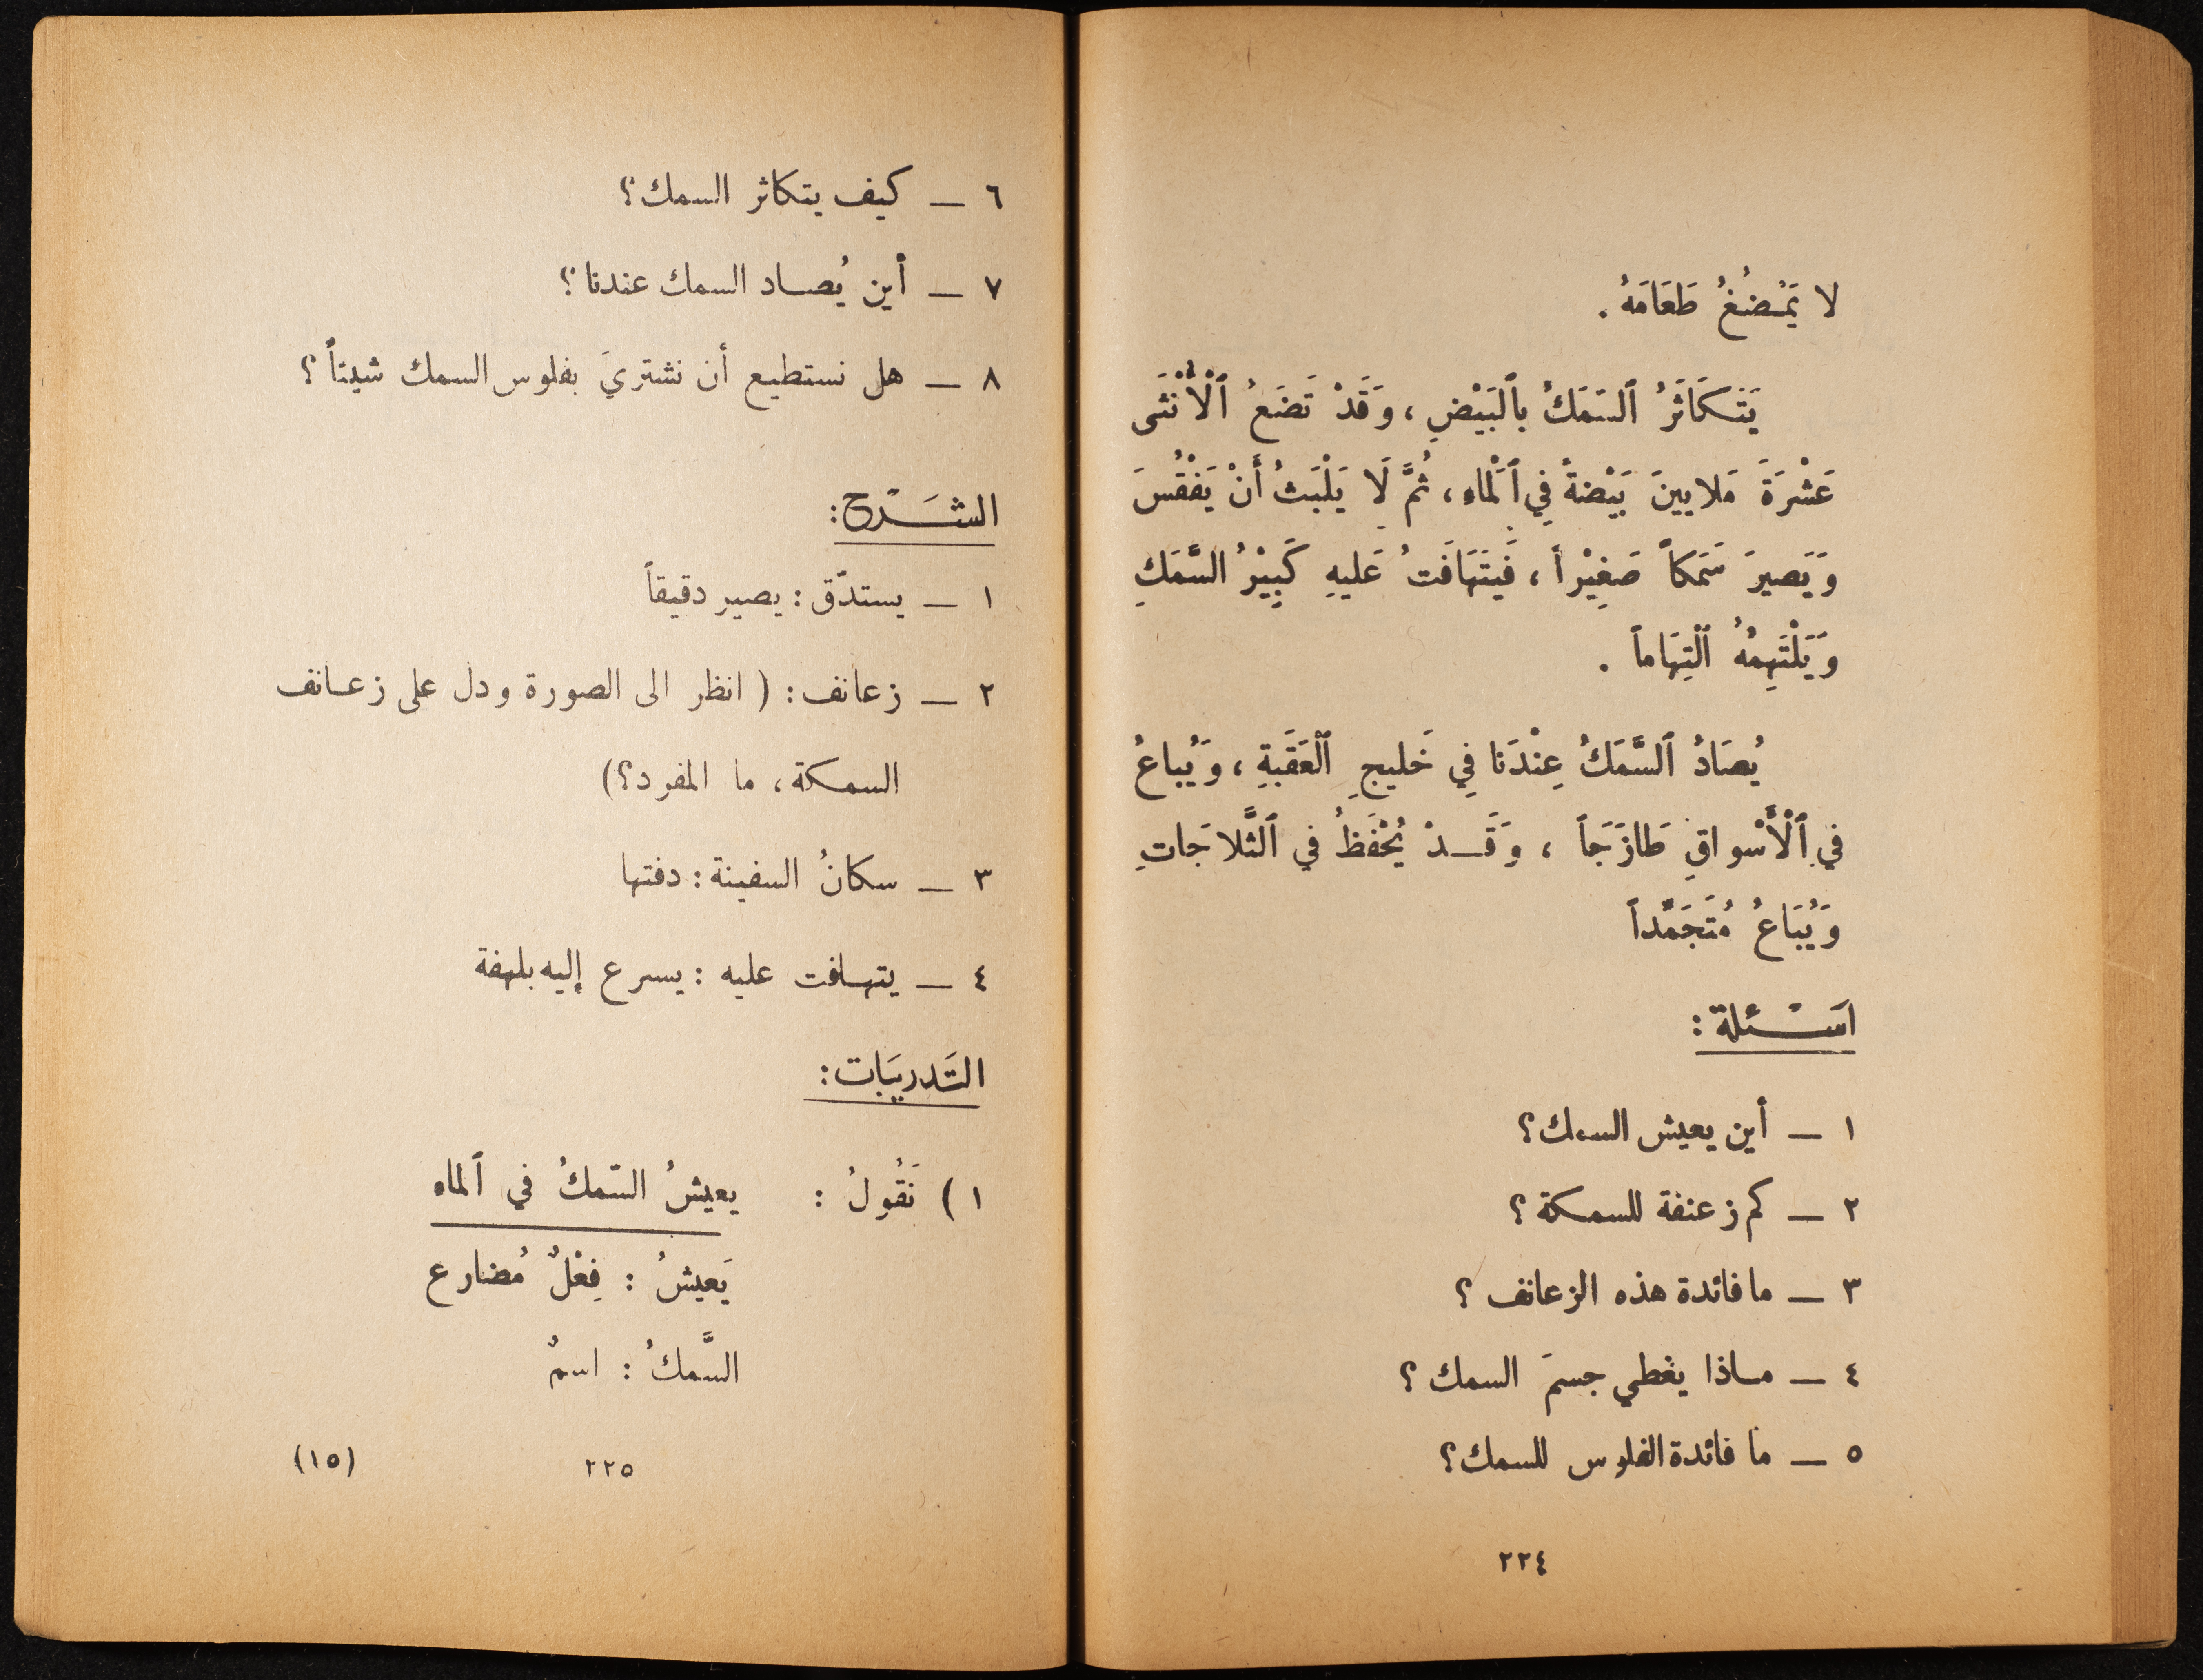 لا يَمْضُغُ طَعَامَهُ .
يَتَكَاثَرُ ٱلسَّمَكُ بِٱلبَيْضِ ، وَقَدْ تَضَعُ ٱلْأُنْثَى
عَشْرَةَ مَلايينَ بَيْضةً فِي ٱلْماءِ ، ثُمَّ لَا يَلْبَثُ أَنْ يَفْقُسَ
وَيَصيرَ سَمَكاً صَغِيْراً ، فَيَتَهَافَتُ عَليهِ كَبِيْرُ السَّمَكِ
وَيَلْتَهِمُهُ ٱلْتِهَاماً .
يُصَادُ ٱلسَّمَكُ عِنْدَنا فِي خَليجِ ٱلْعَقَبةِ ، وَيُباعُ
في ٱلْأَسْواقِ طَازَجَاً ، وَقَدْ يُحْفَظُ في ٱلثَّلاجَاتِ
وَيُبَاعُ مُتَجَمِّداً
اسَـْئلة :
١ — أين يعيش السمك ؟
٢ — كم زعنفة للسمكة ؟
٣ — ما فائدة هذه الزعانف ؟
٤ — ماذا يغطي جسمَ السمك ؟
٥ — ما فائدة الفلوس للسمك ؟
٢٢٤
٦ — كيف يتكاثر السمك ؟
٧ — أين يُصاد السمك عندنا ؟
٨ — هل نستطيع أن نشتريَ بفلوس السمك شيئاً ؟
الشَـرْح :
١ — يستدّق : يصير دقيقاً
٢ — زعانف : ( انظر الى الصورة ودل على زعانف
السمكة ، ما المفرد ؟)
٣ — سكانُ السفينة : دفتها
٤ — يتهافت عليه : يسرع إليه بلهفة
التَدريَبات :
١ ) نَقُولُ : يعيشُ السّمكُ في ٱلماء
يَعيشُ : فِعْلٌ مُضارع
السَّمكُ : اسمٌ
٢٢٥ (١٥)